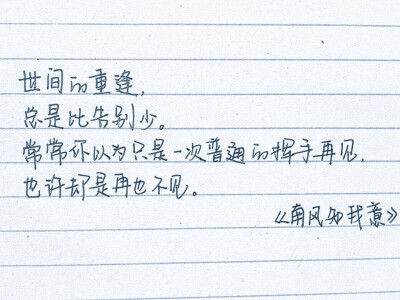 世间的重逢,
总是比告别少。
常常你以为只是一次普通的挥手再见,
也许却是再也不见。
《南风知我意》